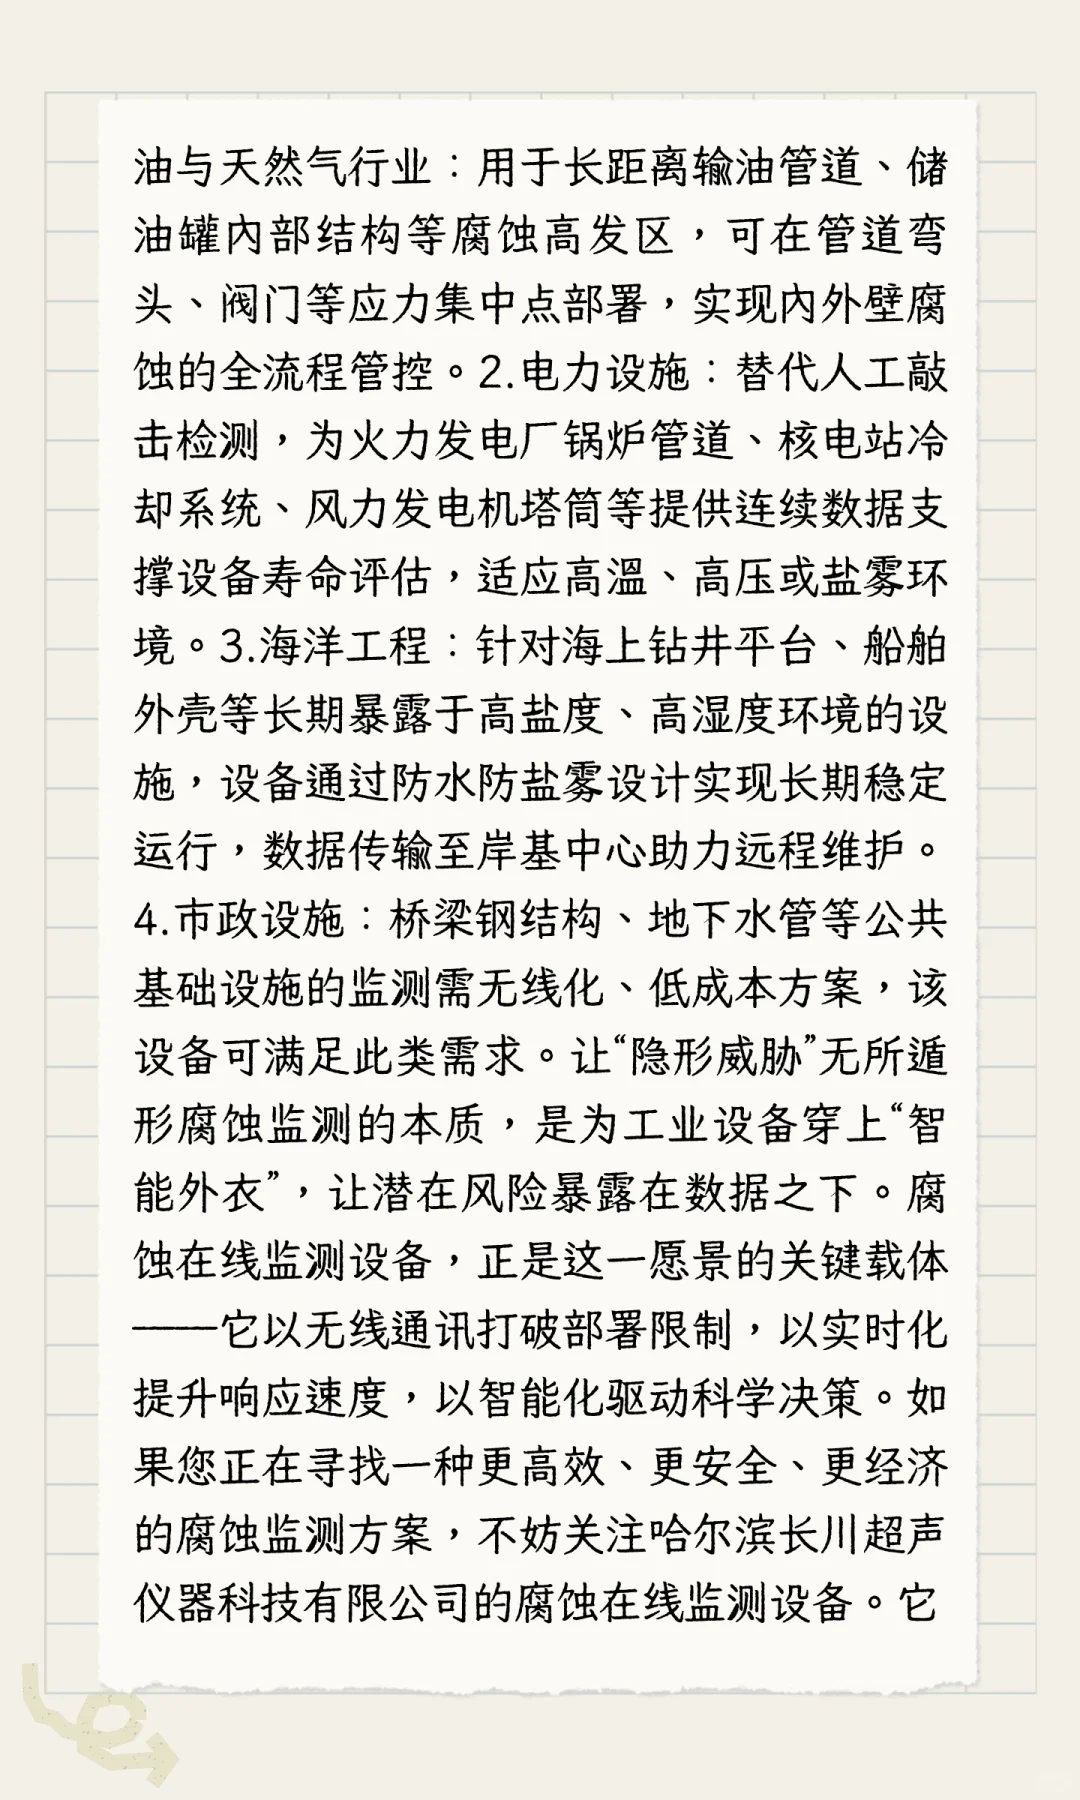 油与天然气行业：用于长距离输油管道、储
油罐内部结构等腐蚀高发区，可在管道弯
头、阀门等应力集中点部署，实现内外壁腐
蚀的全流程管控。2.电力设施：替代人工敲
击检测，为火力发电厂锅炉管道、核电站冷
却系统、风力发电机塔筒等提供连续数据支
撑设备寿命评估，适应高温、高压或盐雾环
境。3.海洋工程：针对海上钻井平台、船舶
外壳等长期暴露于高盐度、高湿度环境的设
施，设备通过防水防盐雾设计实现长期稳定
运行，数据传输至岸基中心助力远程维护。
4.市政设施：桥梁钢结构、地下水管等公共
基础设施的监测需无线化、低成本方案，该
设备可满足此类需求。让“隐形威胁”无所遁
形腐蚀监测的本质，是为工业设备穿上“智
能外衣”，让潜在风险暴露在数据之下。腐
蚀在线监测设备，正是这一愿景的关键载体
——它以无线通讯打破部署限制，以实时化
提升响应速度，以智能化驱动科学决策。如
果您正在寻找一种更高效、更安全、更经济
的腐蚀监测方案，不妨关注哈尔滨长川超声
仪器科技有限公司的腐蚀在线监测设备。它